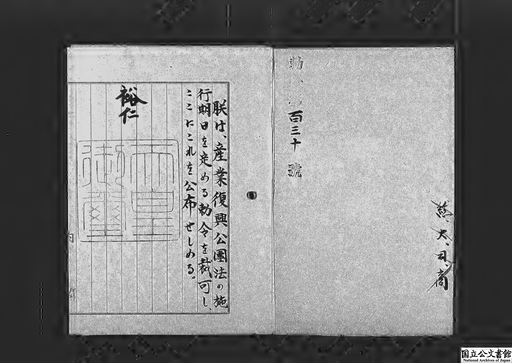 百三十號
大、司、商
朕は、産業復興公團法の施
行期日を定める勅令を裁可し、
ここにこれを公布せしめる。
裕仁
天皇
御璽
国立公文書館
National Archives of Japan